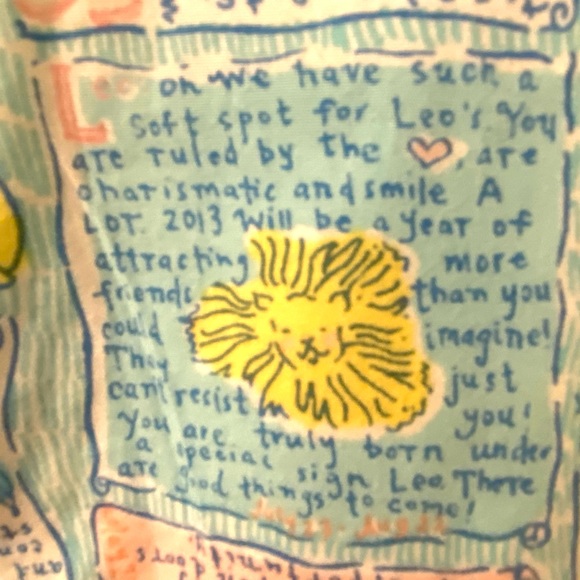 Leo oh we have such a
soft spot for Leo's You
are ruled by the ♡, are
charismatic and smile A
LOT. 2013 Will be a year of
attracting more
friends than you
could imagine!
They just
can't resist you!
You are truly born under
a special sign Leo. There
are good things to come!